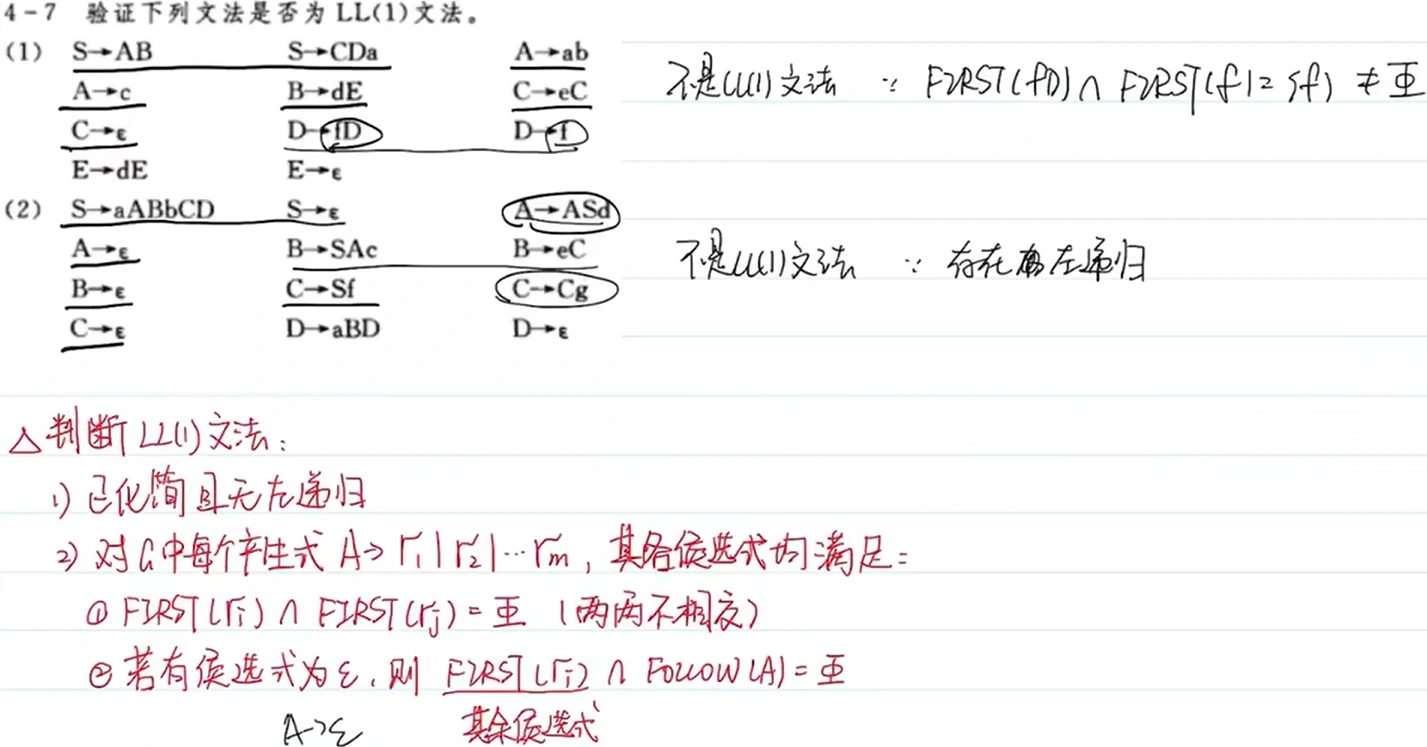 4-7 验证下列文法是否为 LL(1)文法。
(1) S→AB S→CDa A→ab
A→c B→dE C→eC
C→ε D→fD D→f
E→dE E→ε
不是LL(1)文法 ∵ FIRST(fD)∩ FIRST(f)={f} ≠ Φ
(2) S→aABbCD S→ε A→ASd
A→ε B→SAc B→eC
B→ε C→Sf C→Cg
C→ε D→aBD D→ε
不是LL(1)文法 ∵ 存在 左递归
△判断LL(1)文法:
1) 已化简且无左递归
2) 对G中每个产生式 A→r₁|r₂|…rm, 其各侯选式均满足:
① FIRST(ri) ∩ FIRST(rj) = Φ (两两不相交)
② 若有侯选式为ε, 则 FIRST(ri) ∩ FOLLOW(A) = Φ
A→ε 其余侯选式